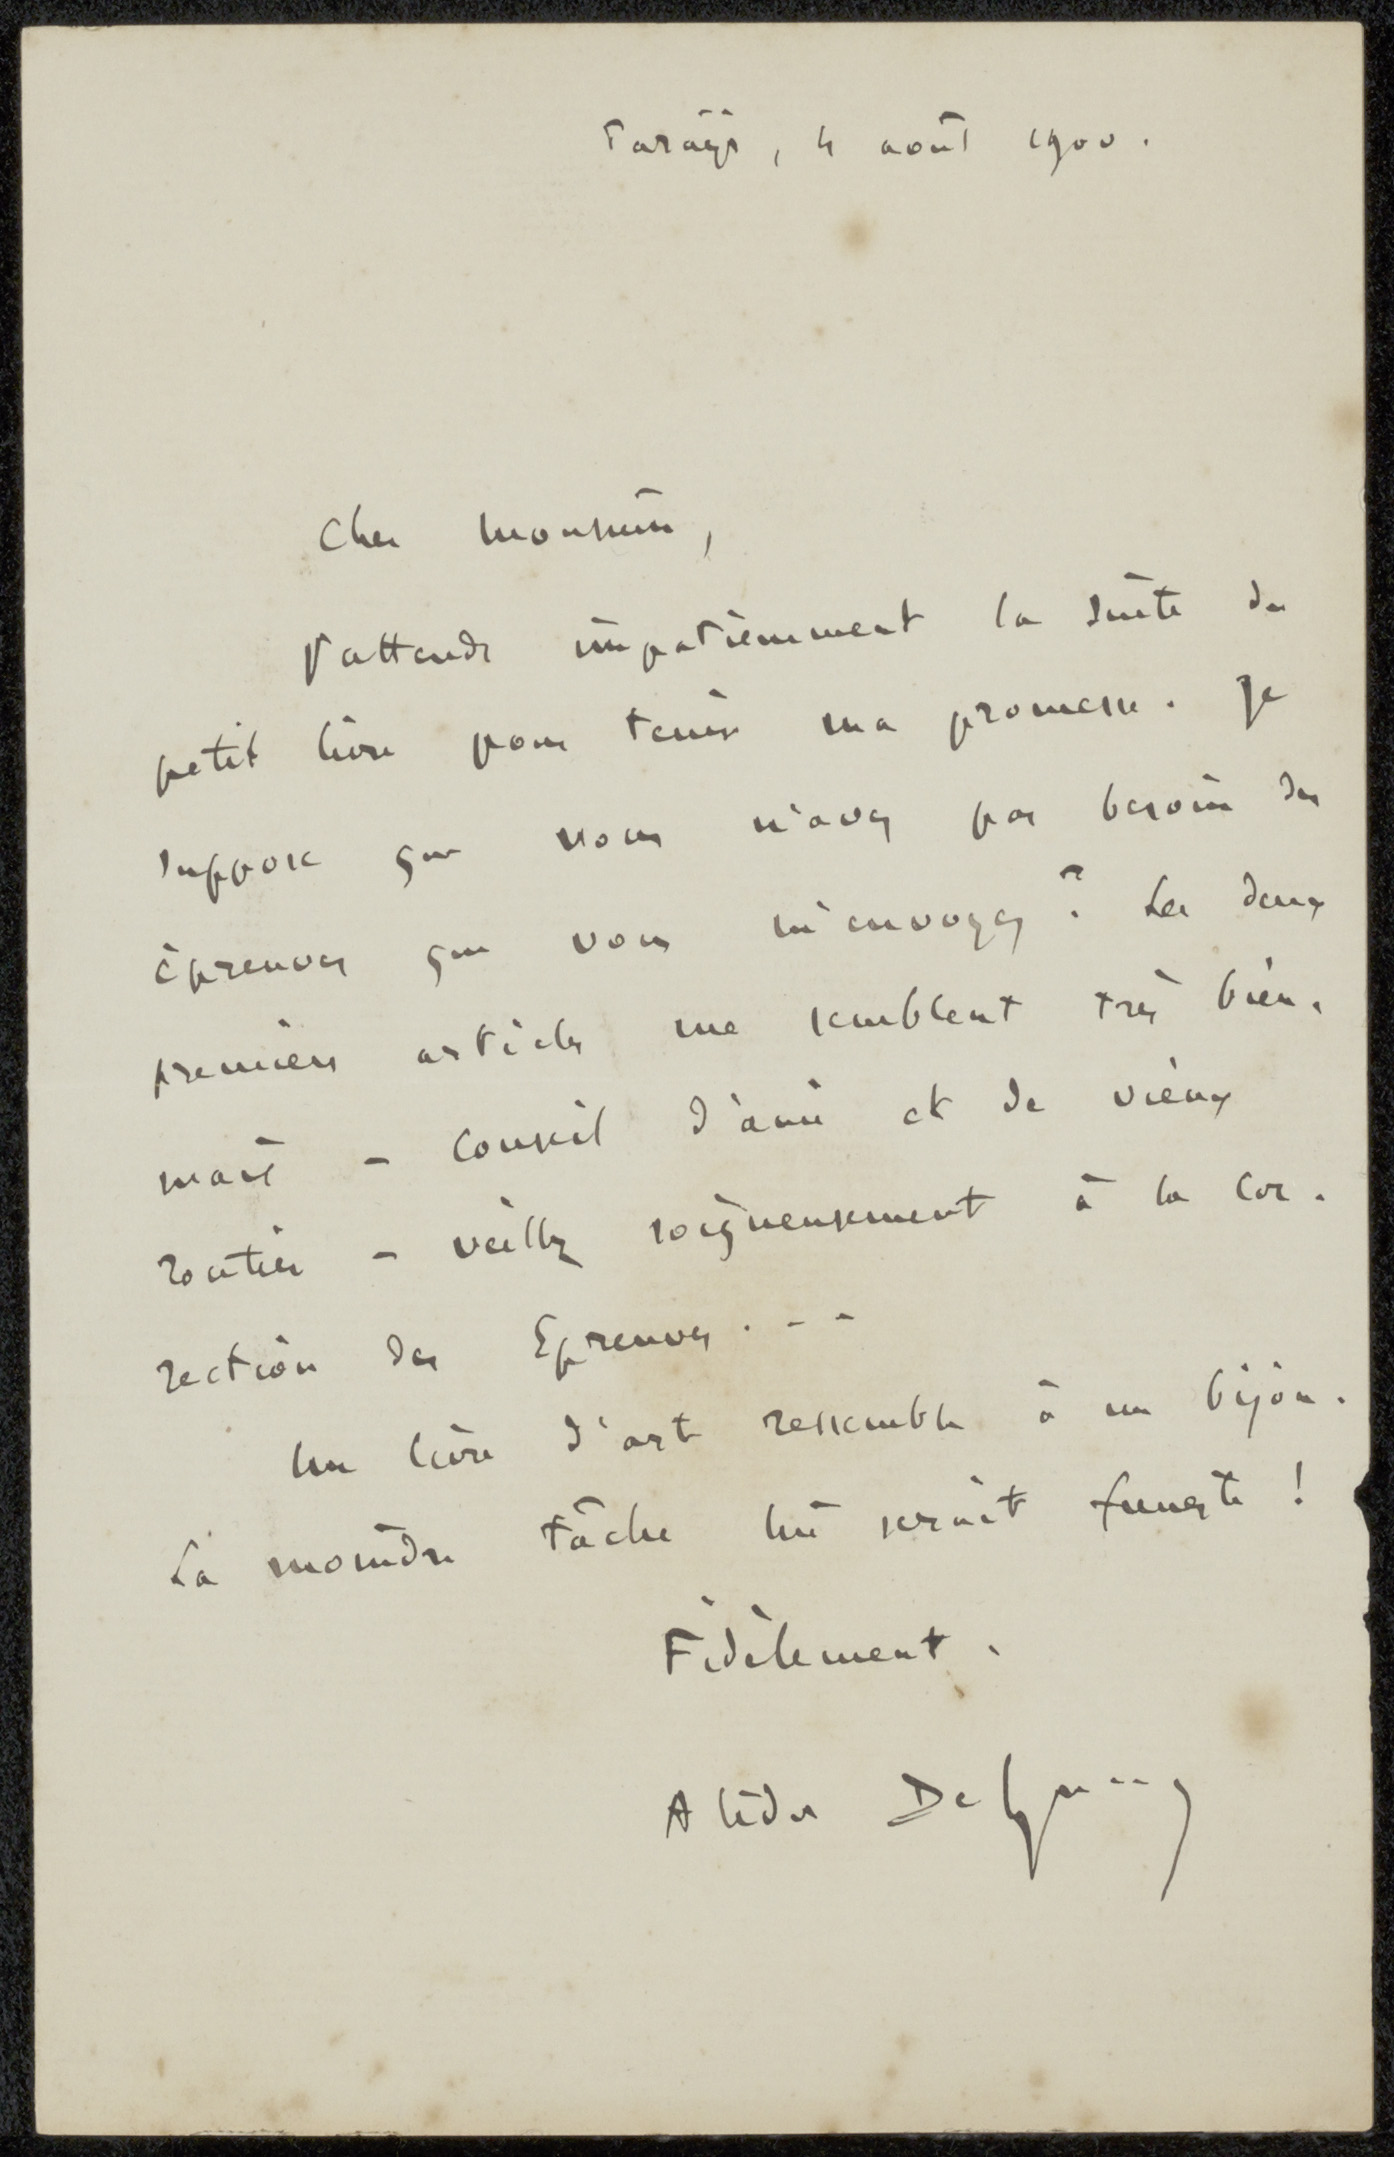 , 4 août 1900.
Cher Monsieur,
J'attends impatiemment la suite du
petit livre pour tenir ma promesse. Je
suppose que vous n'avez pas besoin des
épreuves que vous m'envoyez? Les deux
premiers articles me semblent très bien.
mais - conseil d'ami et de vieux
routier - veillez soigneusement à la cor-
rection des Epreuves...
Un livre d'art ressemble à un bijou.
La moindre tâche lui serait funeste!
Fidèlement.